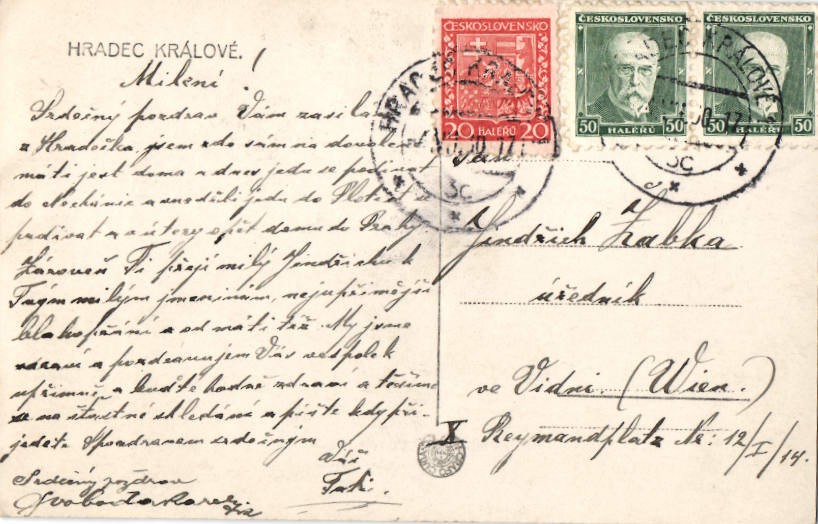 HRADEC KRÁLOVÉ.
Milení!
Srdečný pozdrav Vám zasílá
z Hradečka, jsem zde sám na dovolené
máti jest doma a dnes jedu se podívat
do Nechánic a v neděli jedu do
podívat a v úterý opět domů do Prahy
Zároveň Ti přeji milý Jindřichu k
Tvým milým jmeninám, nejupřímější
blahopřání a od máti též. My jsme
zdraví a pozdravujem Vás vespolek
upřímně, a buďte hodně zdraví a těšíme
se na šťastné shledání a pište kdy při-
jedete S pozdravem srdečným
Váš
Srdečný pozdrav
Svoboda
ČESKOSLOVENSKO
20 HALÉŘŮ 20
ČESKOSLOVENSKO
50 HALÉŘŮ 50
ČESKOSLOVENSKO
50 HALÉŘŮ 50
HRADEC KRÁLOVÉ
3c
HRADEC KRÁLOVÉ
3c
Pan
Jindřich Žabka
úředník
ve Vídni (Wien.)
X Reymandplatz Nr: 12/I/14.